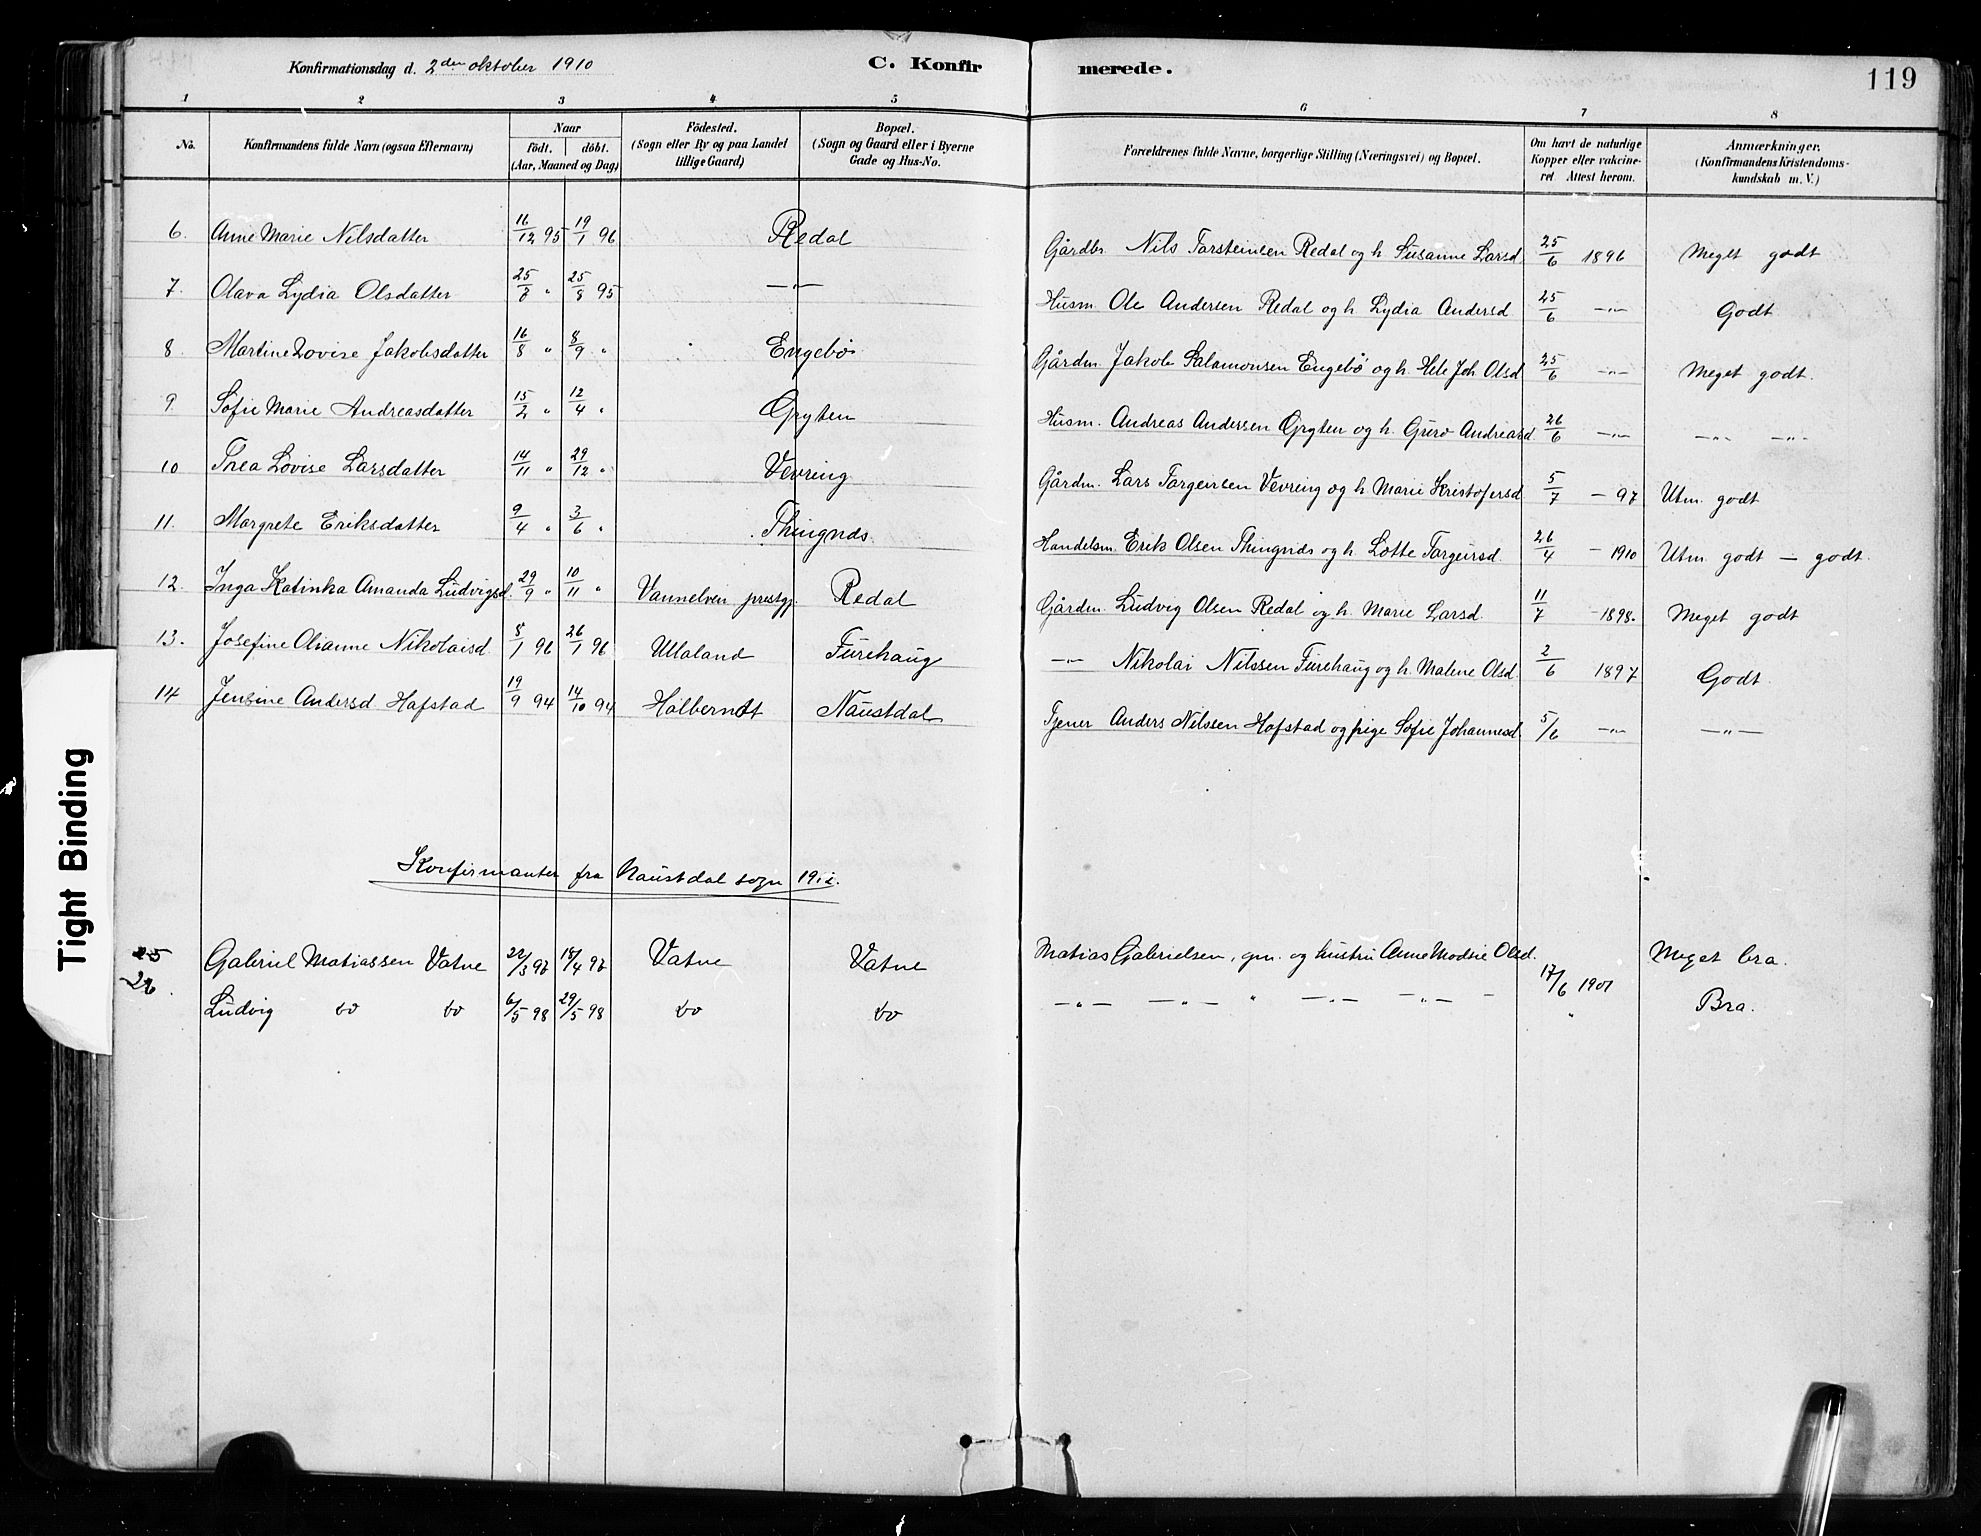 Konfirmationsdag d. 2den oktober 1910 C. Konfir merede. 119
1 2 3 4 5 6 7 8
No. Konfirmandens fulde Navn (ogsaa Efternavn) Naar födt. döbt. (Aar, Maaned og Dag) Födested. (Sogn eller By og paa Landet tillige Gaard) Bopæl. (Sogn og Gaard eller i Byerne Gade og Hus-No. Forældrenes fulde Navne, borgerlige Stilling (Næringsvei) og Bopæl. Om havt de naturlige Kopper eller vakcineret Attest herom. Anmærkninger. (Konfirmandens Kristendomskundskab m. V.)
6. Anne Marie Nilsdatter 16/12 95 19/1 96 Redal Gårdbr. Nils Torsteinsen Redal og h. Susanne Larsd 25/6 1896 Meget godt
7. Olava Lydia Olsdatter 25/7 " 25/8 95 —"— Husm. Ole Andersen Redal og h. Lydia Andersd 25/6 —"— Godt
8. Martine Lovise Jakobsdatter 16/8 " 8/9 " Engebö Gårdm. Jakob Salamonsen Engebö og h. Hele Joh. Olsd 25/6 —"— Meget godt.
9 Sofie Marie Andreasdatter 15/2 " 12/4 " Gryten Husm. Andreas Andersen Gryten og h. Guro Andreasd 26/6 —"— —"— —"—
10 Thea Lovise Larsdatter 14/11 " 29/12 " Vevring Gårdm. Lars Torgeirsen Vevring og h. Marie Kristofersd 5/7 — 97 Utm. godt
11. Margrete Eriksdatter 9/4 " 3/6 " Thingnds. Handelsm. Erik Olsen Thingnds og h. Lotte Torgeirsd. 26/4 — 1910 Utm. godt — godt.
12. Inga Katinka Amanda Ludvigsd. 29/9 " 10/11 " Vannelven prestgj. Redal Gårdm. Ludvig Olsen Redal og h. Marie Larsd. 11/7 — 1898. Meget godt
13. Josefine Olianne Nikolaisd. 8/1 96 26/1 96 Ullaland Furehaug —"— Nikolai Nilssen Furehaug og h. Malene Olsd. 2/6 1897 Godt.
14 Jensine Andersd Hafstad 19/9 94 14/10 94 Halberndt Naustdal Tjener Anders Nilssen Hafstad og pige Sofie Johannesd 5/6 —"— —"—
Konfirmanter fra Naustdal sogn 1912.
25 Gabriel Matiassen Vatne 22/3 97 18/4 97 Vatne Vatne Matias Gabrielsen, gm. og hustru Anne Olsd. 17/6 1901 Meget bra.
26. Ludvig do do 6/5 98 29/5 98 do do —"— —"— " —"— —"— " Bra.
Tight Binding